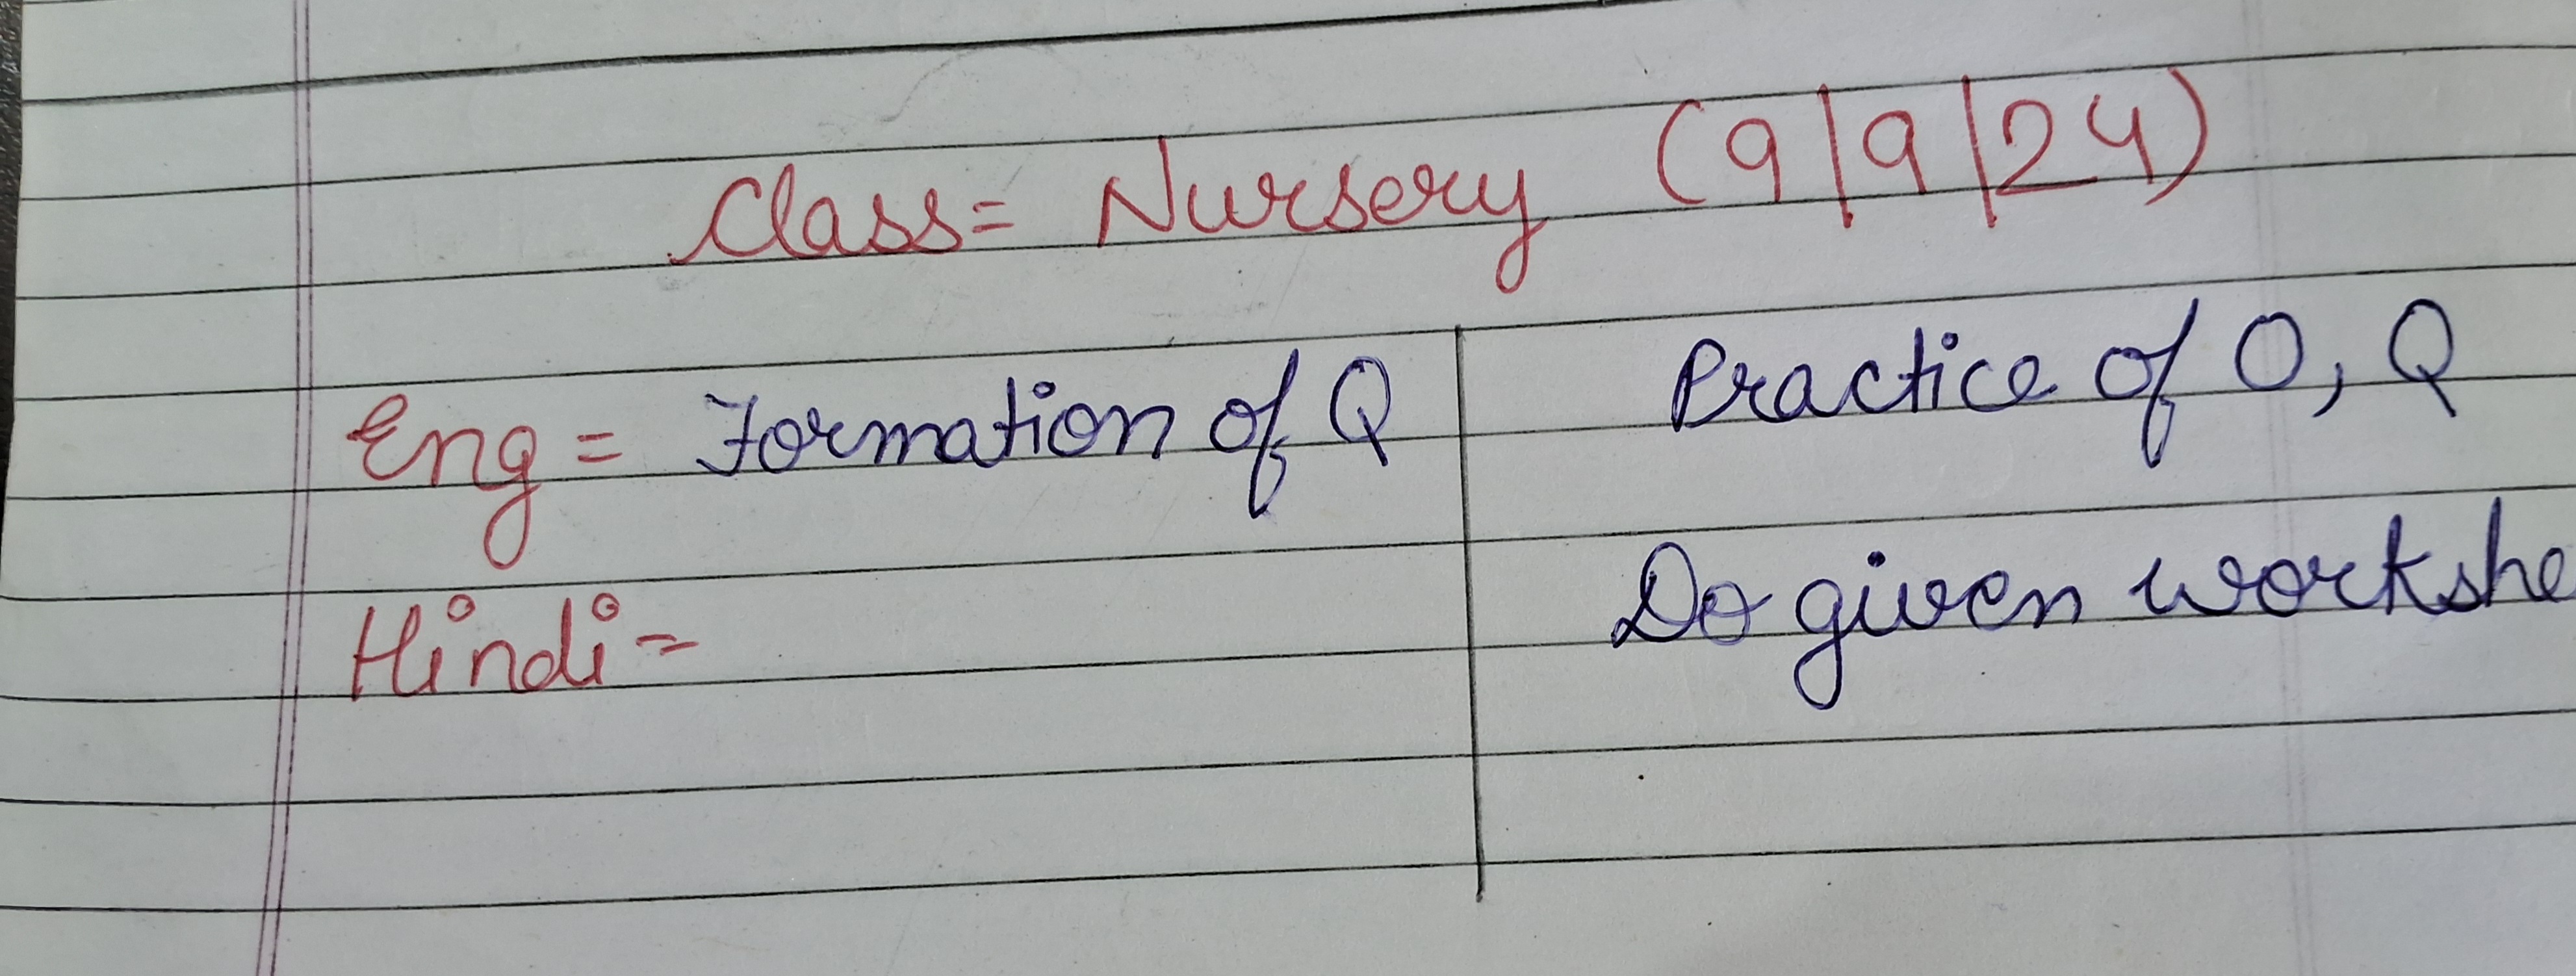 Class= Nursery (9|9|24)
Eng = Formation of Q
Practice of O, Q
Hindi =
Do given workshe